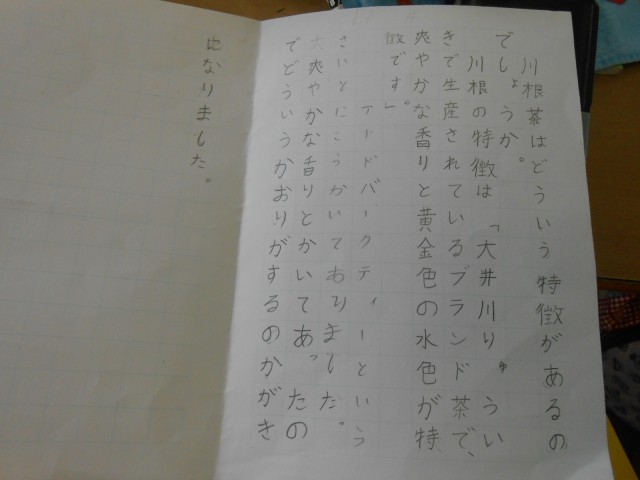 川根茶はどういう特徴があるの
でしょうか。
川根の特徴は「大井川りゅうい
きで生産されているブランド茶で、
爽やかな香りと黄金色の水色が特
徴です」。
アードバークティーという
さいとにこうかいておりました。
爽やかな香りとかいてあったの
でどういうかおりがするのかがき
になりました。